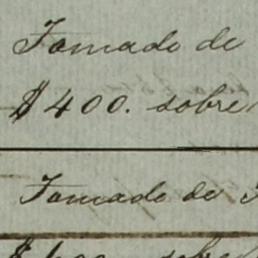 Tomado de
$400. sobre
Tomado de